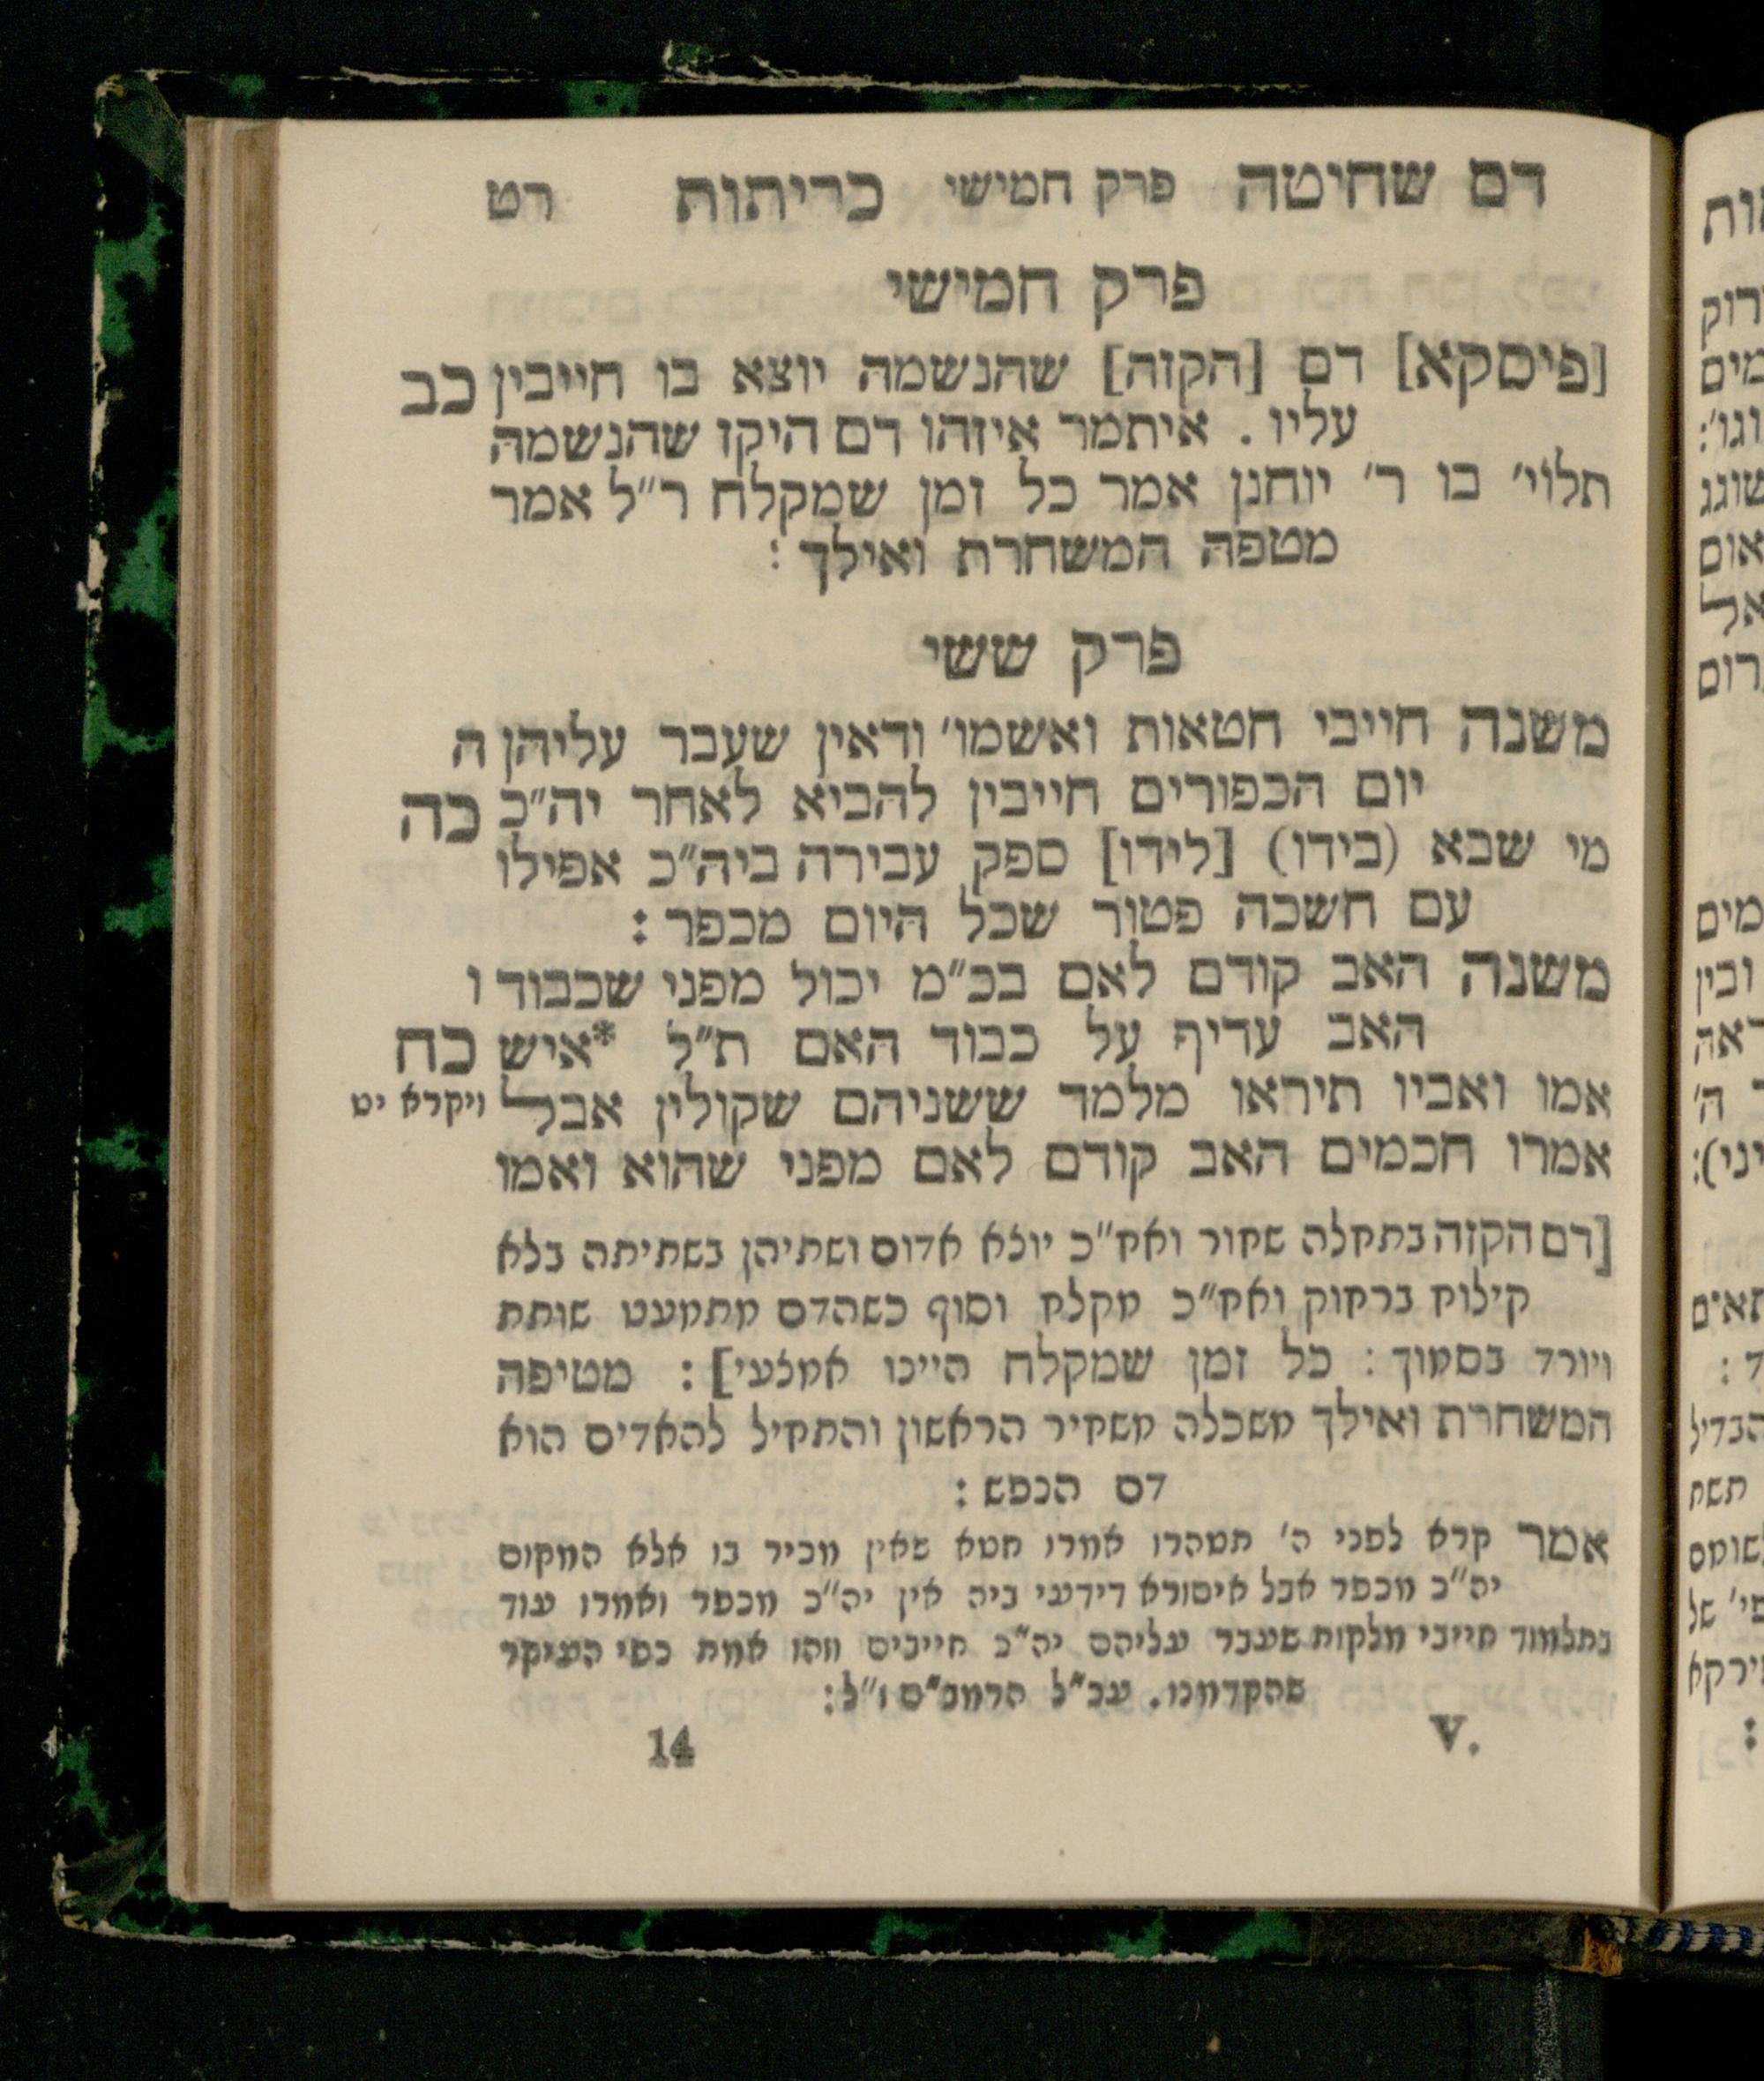 דם שחיטה פרק חמישי כריתות רט
פרק חמישי
[פיסקא] דם [הקזה] שהנשמה יוצא בו חייבין כב
עליו . איתמר איזהו דם היקז שהנשמה
תלוי׳ בו ר׳ יוחנן אמר כל זמן שמקלח ר״ל אמר
מטפה המשחרת ואילך :
פרק ששי
משנה חייבי חטאות ואשמו׳ ודאין שעבר עליהן ה
יום הכפורים חייבין להביא לאחר יה״כ כה
מי שבא (בידו) [לידו] ספק עבירה ביה״כ אפילו
עם חשכה פטור שכל היום מכפר :
משנה האב קודם לאם בכ״מ יכול מפני שכבוד ו
האב עדיף על כבוד האם ת״ל *איש כח
אמו ואביו תיראו מלמד ששניהם שקולין אבל ויקרא יט
אמרו חכמים האב קודם לאם מפני שהוא ואמו
[דם הקזה בתחלה שחור ואח״כ יוצא אדום ושתיהן בשתיתה בלא
קילוח ברחוק ואח״כ מקלח וסוף כשהדם מתמעט שותת
ויורד בסמוך : כל זמן שמקלח היינו אמצעי] : מטיפה
המשחרת ואילך משכלה משחיר הראשון והתחיל להאדים הוא
דם הנפש :
אמר קרא לפני ה׳ תטהרו אמרו חטא שאין מכיר בו אלא המקום
יה״כ מכפר אבל איסורא דידעי ביה אין יה״כ מכפר ואמרו עוד
בתלמוד חייבי מלקות שעבר עליהם יה״כ חייבים וזהו אמת כפי העיקר
שהקדמנו. עכ״ל הרמב״ם ז״ל:
V. 14